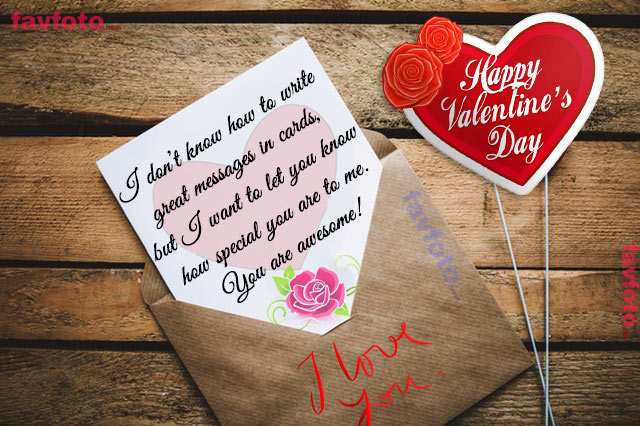 favfoto
Happy
Valentine's
Day
I don't know how to write
great messages in cards,
but I want to let you know
how special you are to me.
You are awesome!
favfoto
favfoto
I love
you.